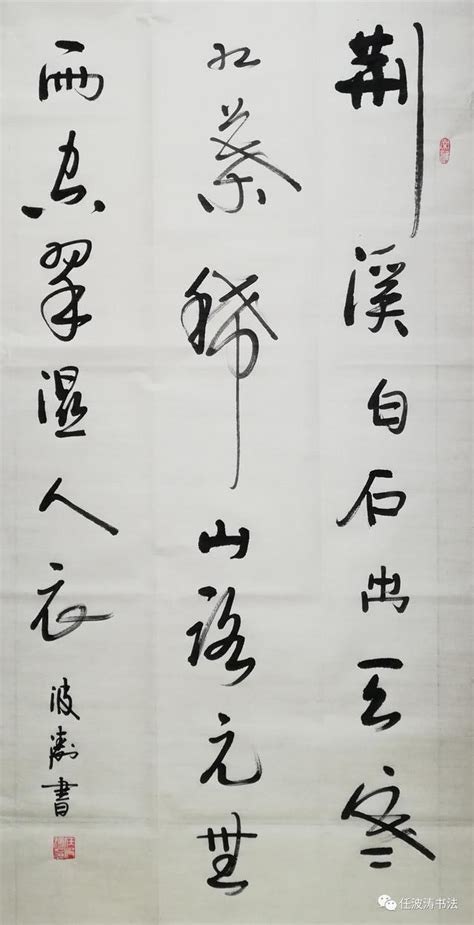 荆溪白石出天寒
紅葉稀山路元無
雨空翠濕人衣
波濤書
任波涛书法